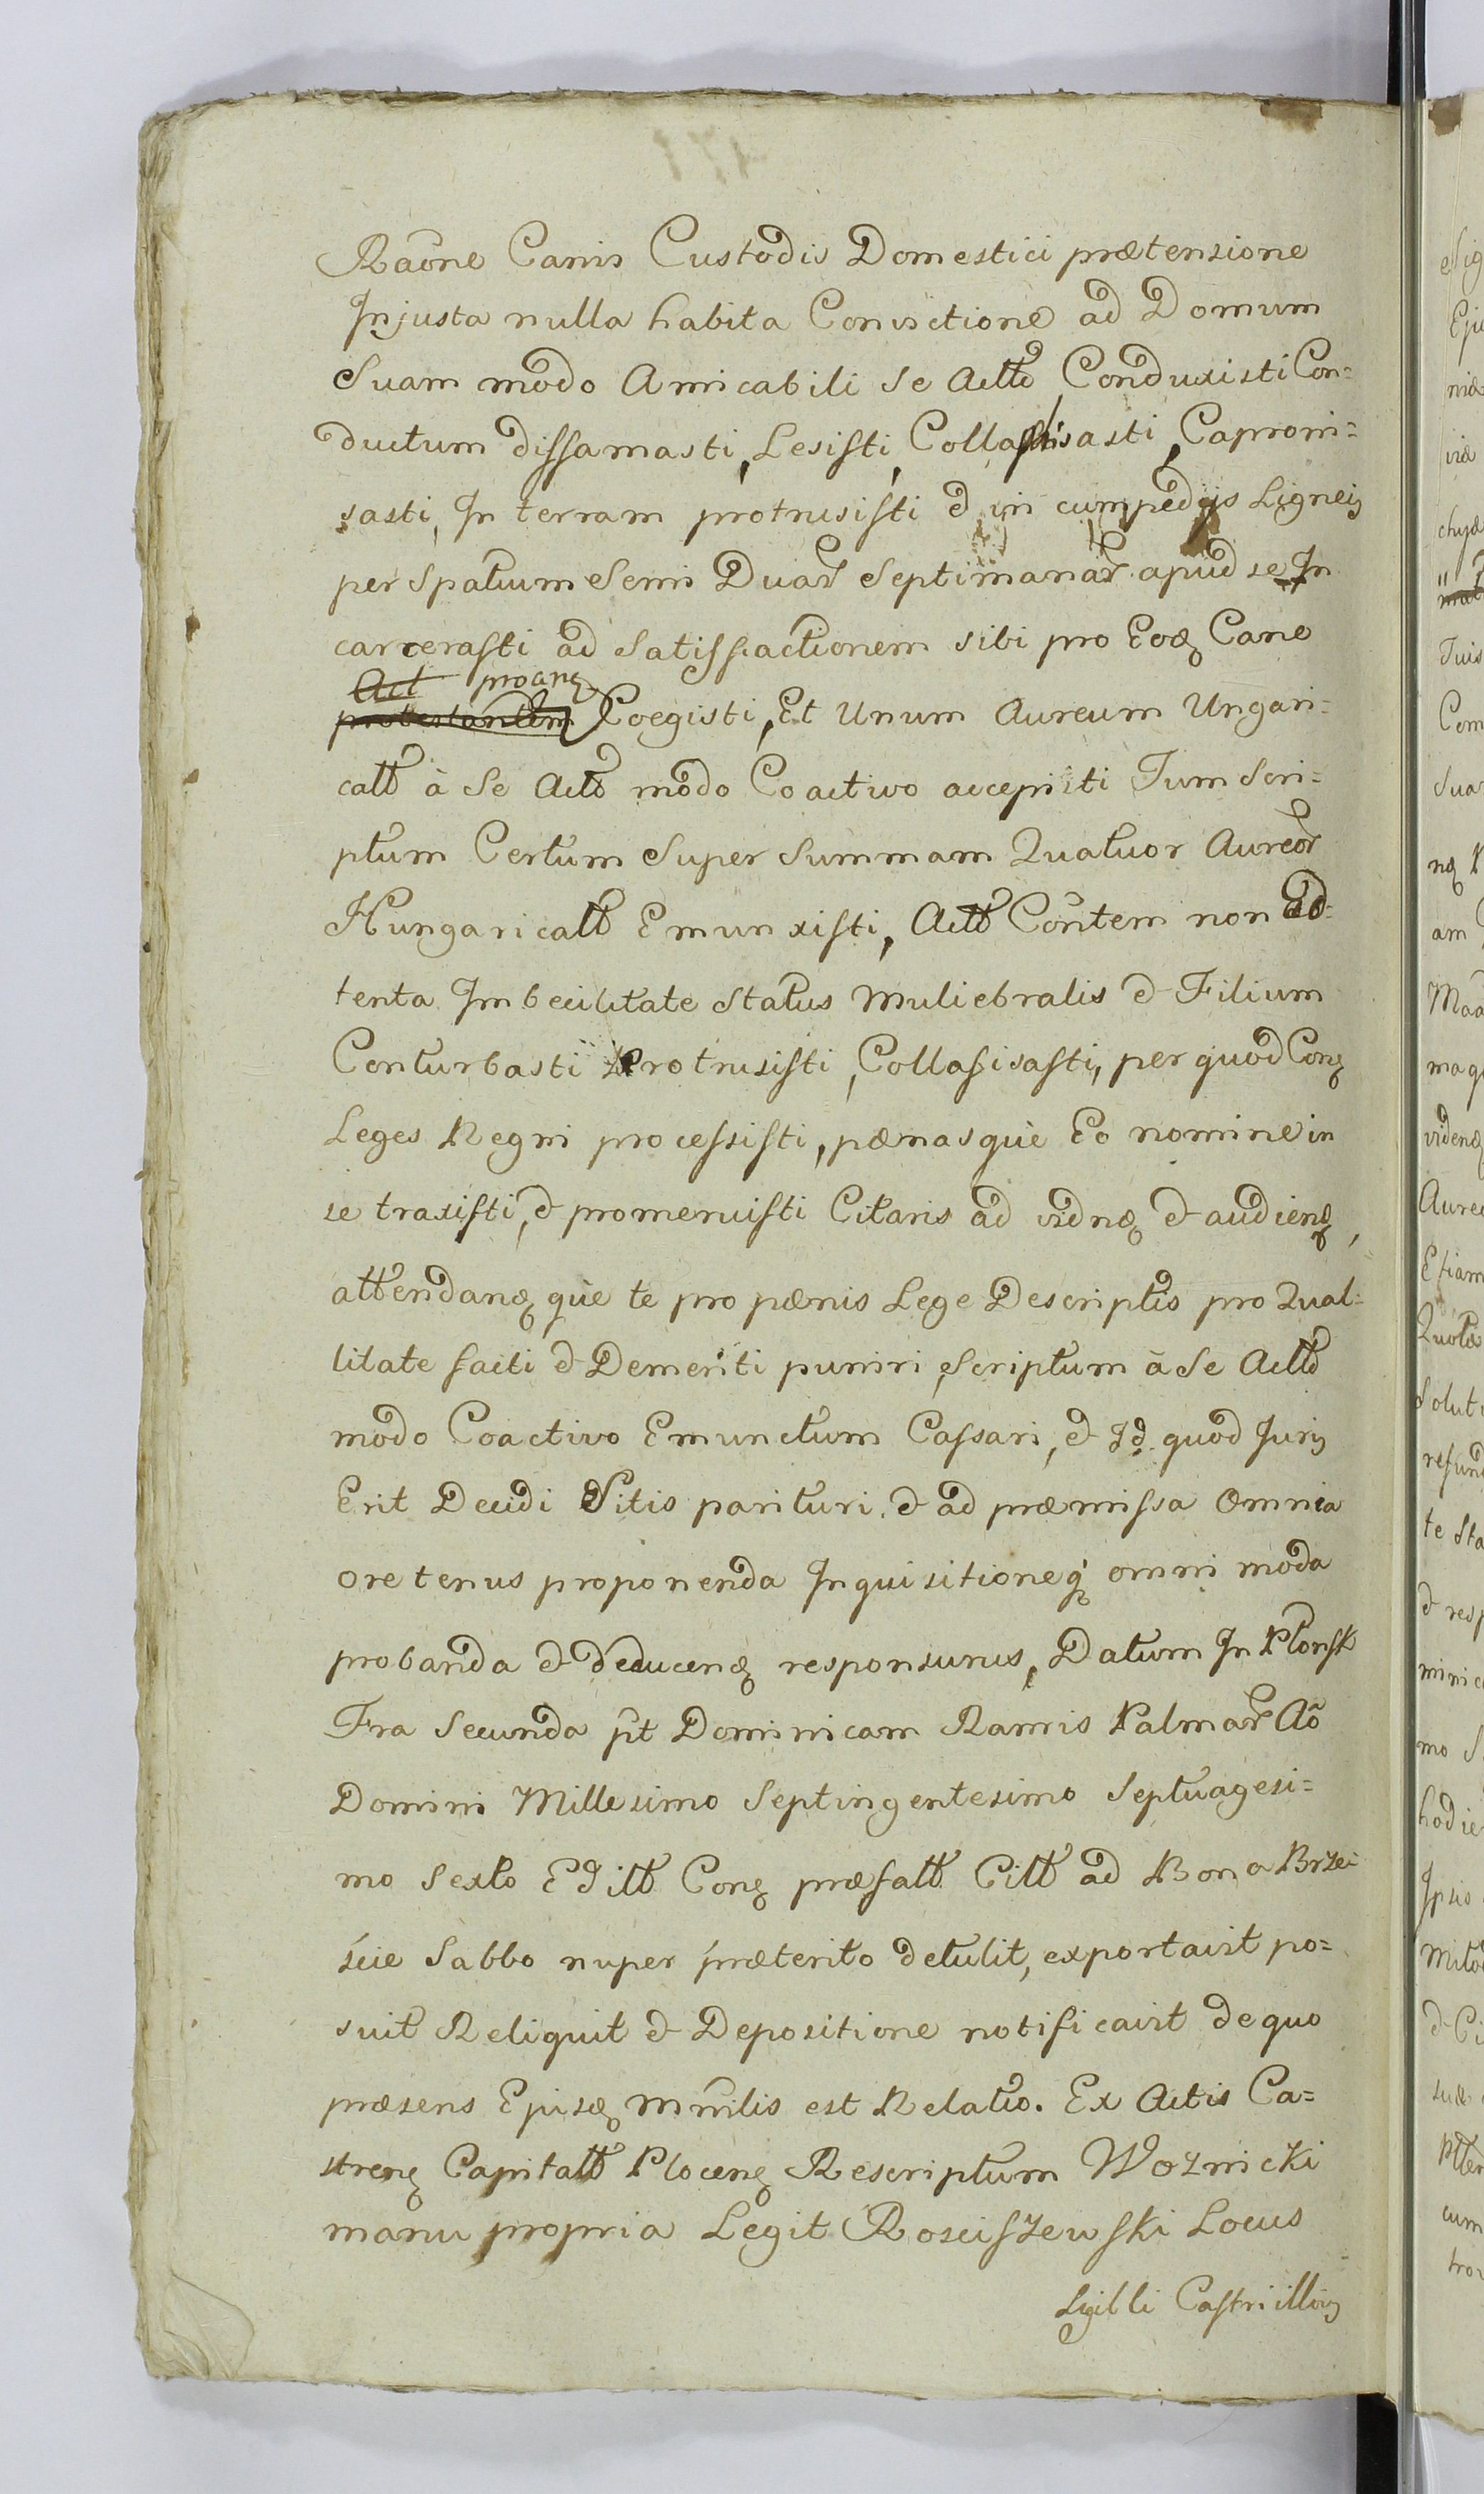 Raõne Canis Custodis Domestici prætensione
Injusta nulla habita Convictione ad Domum
Suam modo Amicabili Se Actto Conduxisti Con=
ductum diffamasti, Lesisti, Collaphisasti, Caproni=
sasti, In terram protrusisti & in cumpedijs Ligneis
per Spatium Semi Duar Septimanar apud se In
carcerasti ad Satisfactionem sibi pro Eoq Cane
Act proarg
protestantem Coegisti, Et Unum Aureum Ungari=
catt à Se Actt modo Coactivo accepisti Tum Scri=
ptum Certum Super Summam Quatuor Aureor
Hungaricatt Emunxisti, Actt Cõntem non Ad=
tenta Imbecilitate Status Muliebralis & Filium
Conturbasti Protrusisti, Collafisasti, per quod Conq
Leges Regni processisti, pænasque Eo nomine in
se traxisti, & promeruisti Citaris ad vidnq & audienq,
attendanq que te pro pænis Lege Descriptis pro Qual=
litate facti & Demeriti puniri, Scriptum à Se Actto
modo Coactivo Emunctum Cassari, & Id quod Juris
Erit Decidi Sitis parituri & ad præmissa Omnia
ore tenus proponenda Inquisitioneq omni moda
probanda & deducenq responsurus, Datum In Plonsk
Fra Secunda pt Dominicam Ramis Palmar Aõ
Domini Millesimo Septingentesimo Septuagesi=
mo Sexto Editt Conq præfatt Citt ad Bona Brzei
ście Sabbo nuper præterito detulit, exportavit po=
suit Reliquit & Depositione notificavit de quo
præsens Episq Mñilis est Relatio. Ex Actis Ca=
strenq Capitatt Plocenq Rescriptum Woznicki
manu propria Legit Rosciszewski Locus
Sigilli Castri illius